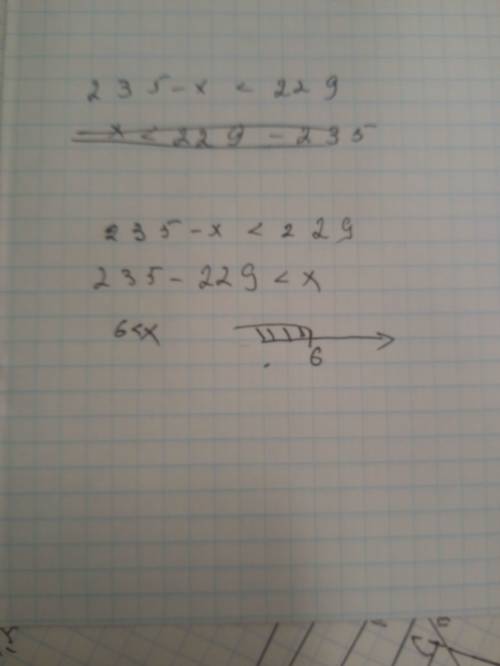 235-x < 229
-x < 229 - 235
235-x < 229
235-229 < x
6<x
6